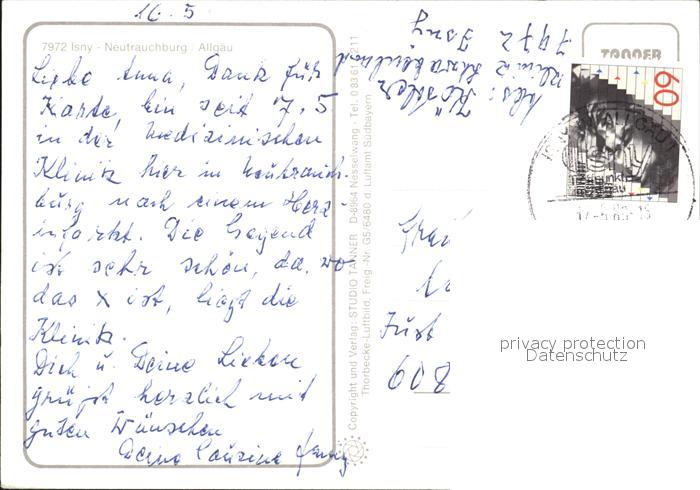 16.5
7972 Isny - Neutrauchburg Allgäu
Liebe Anna, Dank für
Karte, bin seit 7.5
in der Medizinischen
Klinik hier in Neutrauch-
burg nach einem Herz-
infarkt. Die Gegend
ist sehr schön, da, wo
das x ist, liegt die
Klinik.
Dich u. Deine Lieben
grüßt herzlich mit
guten Wünschen
Deine Cousine
Copyright und Verlag: STUDIO TANNER D-8964 Nesselwang · Tel. 0 83 61 / 2 11
Thorbecke-Luftbild, Freig.-Nr. G5/6480 d. Luftamt Südbayern
Abs: Köstler
Klinik Schwabenland
7972 Isny
TANNER
60
Frau
608
privacy protection
Datenschutz